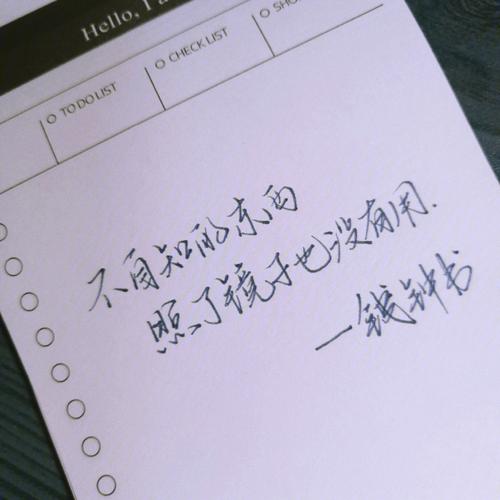 Hello, I a
TO DO LIST
CHECK LIST
SHO
不自知的东西
照了镜子也没有用.
—钱钟书